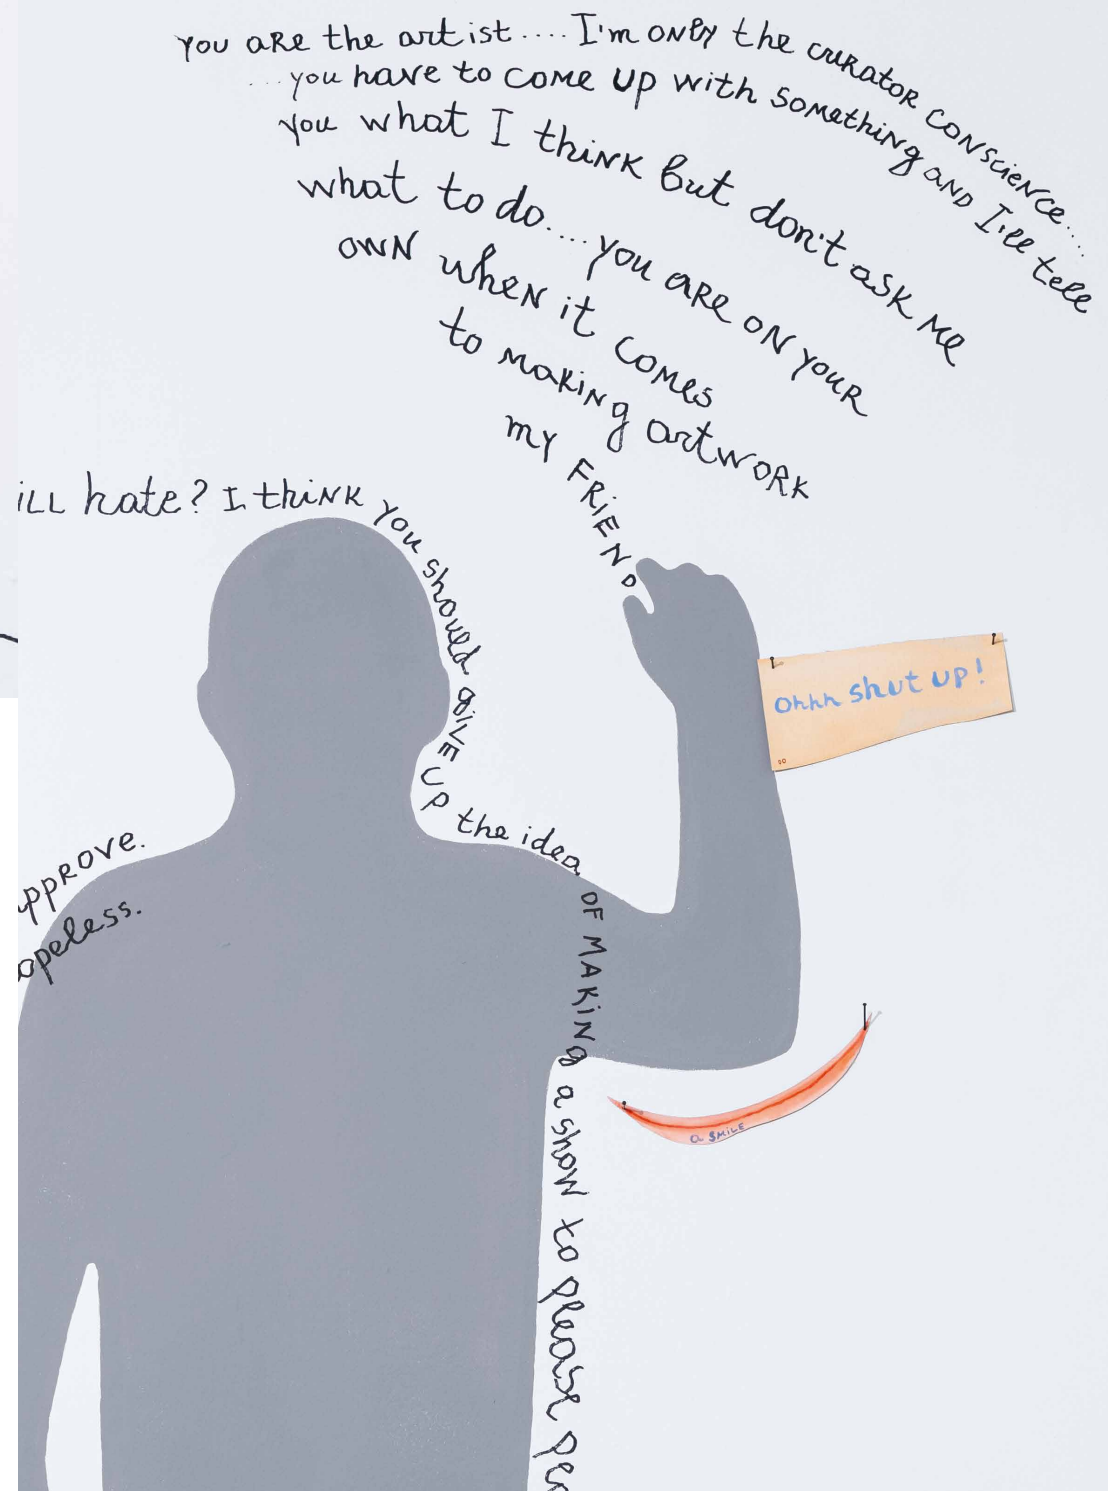 you are the artist.... I'm only the curator conscience....
...you have to come up with something and I'll tell
you what I think but don't ask me
what to do....you are on your
own when it comes
to making artwork
my FRIEND
ill hate? I think you should give up the idea of making a show to please
ohhh shut up!
pprove.
opeless.
a smile